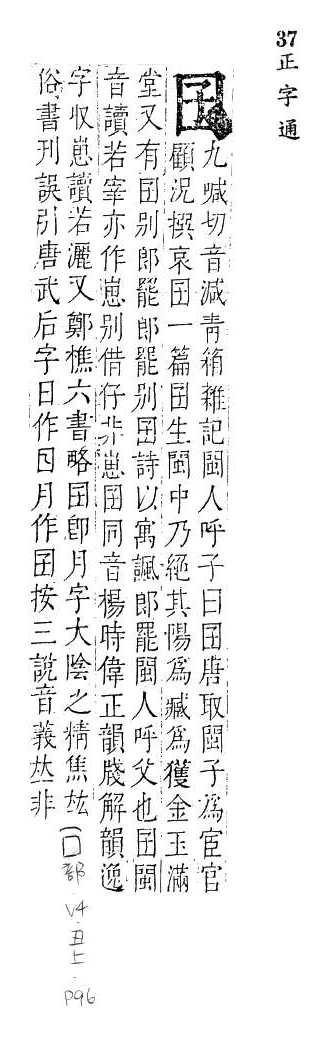 37
正字通
囝
九喊切音減青箱雜記閩人呼子曰囝唐取閩子為宦官
顧況撰哀囝一篇囝生閩中乃絕其陽為臧為獲金玉滿
堂又有囝别郎罷郎罷别囝詩以寓諷郎罷閩人呼父也囝閩
音讀若宰亦作崽别借仔非崽囝同音楊時偉正韻牋解韻逸
字収崽讀若灑又鄭樵六書略囝卽月字大陰之精焦竑
俗書刊誤引唐武后字日作囸月作囝按三說音義𠀤非
(口部
V4
丑上
p96